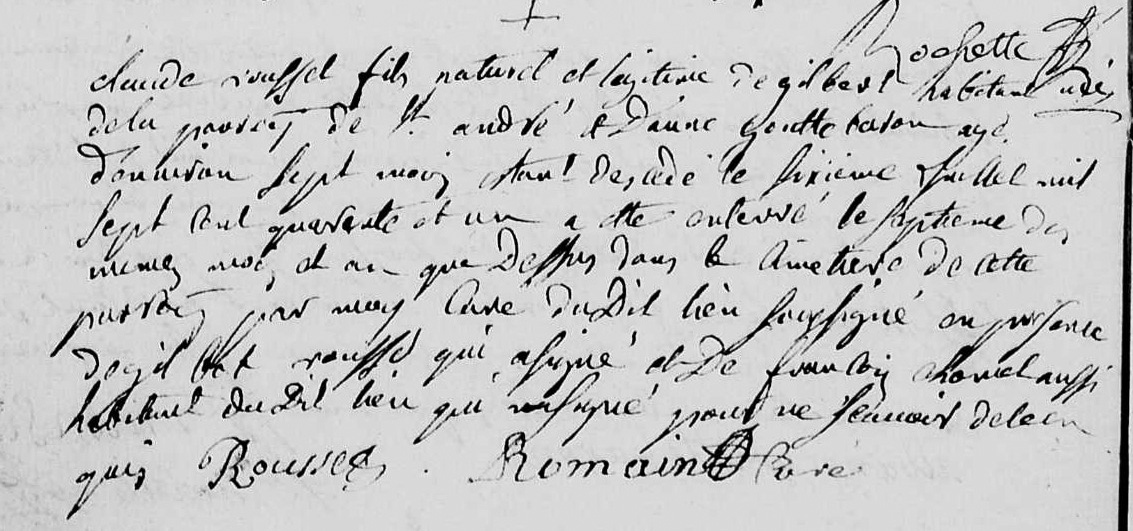 Rochette
claude roussel fils naturel et legitime de gilbert habitant
dela parroisse de st. andré et D'anne goutte baron agé
D'environ sept mois etant decedé le sixieme Juillet mil
sept cent quarante et un a etté enterré le septieme des
memes mois et an que Dessus dans le Cimetiere de cette
parroisse par moy Curé duDit lieu soussigné en presence
de gilbert roussel qui a signé et De francois chomet aussi
habitant duDit lieu qui n'a signé pour ne sçauoir de ce en
quis Roussel . Romain Curé